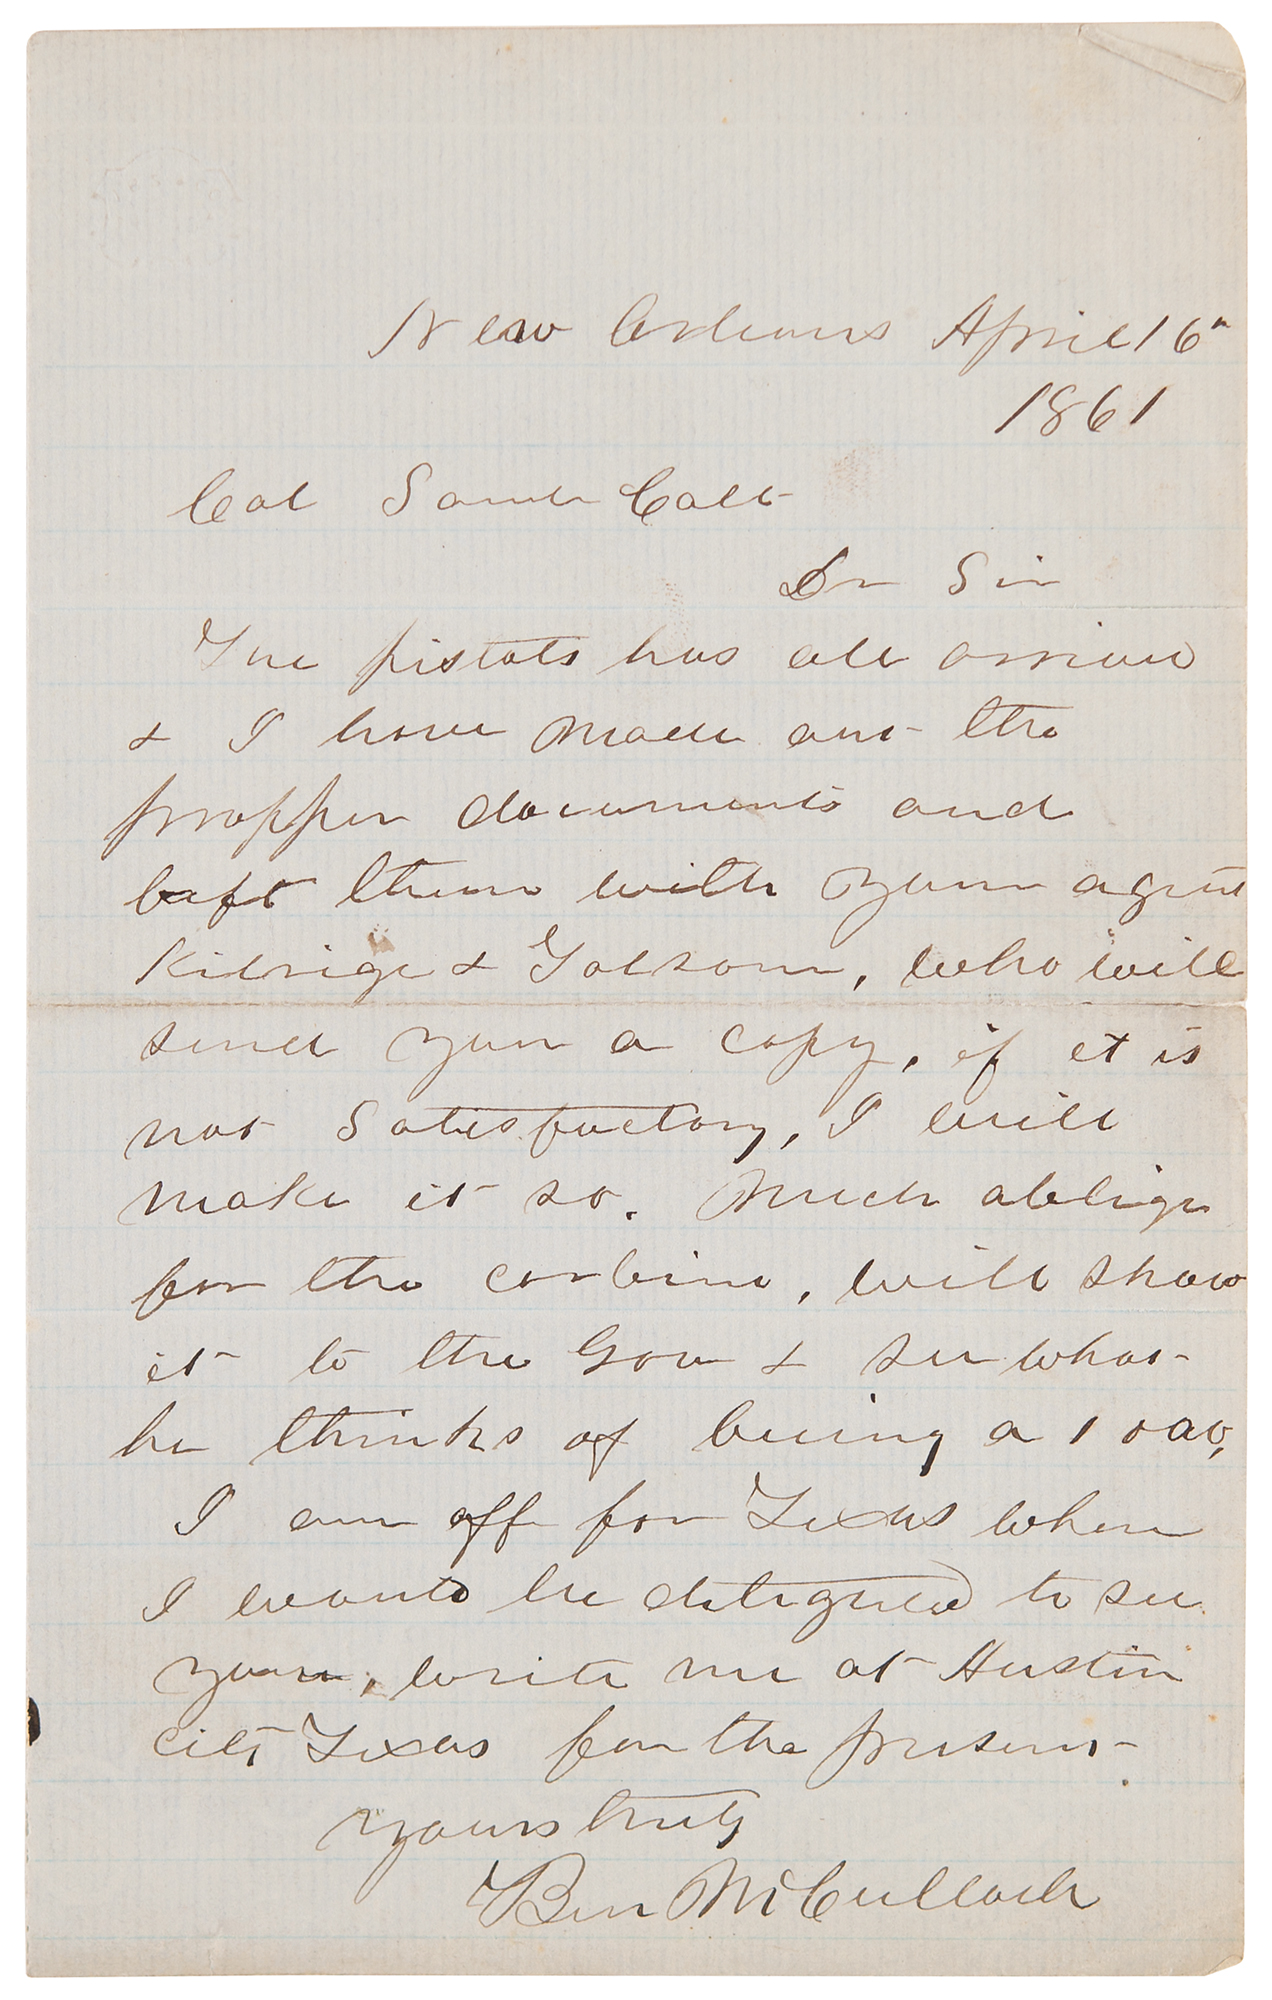 New Orleans April 16th
1861
Col Saml Colt
Dr Sir
The pistols has all arrived
& I have made out the
propper documents and
left them with your agent
Kitrige & Folsom, who will
send you a copy, if it is
not Satisfactory, I will
make it so. Much oblige
for the carbine, will show
it to the Gov & see what
he thinks of buying a 1000,
I am off for Texas where
I would be delighted to see
you, write me at Austin
City Texas for the present
yours truly
Ben McCulloch